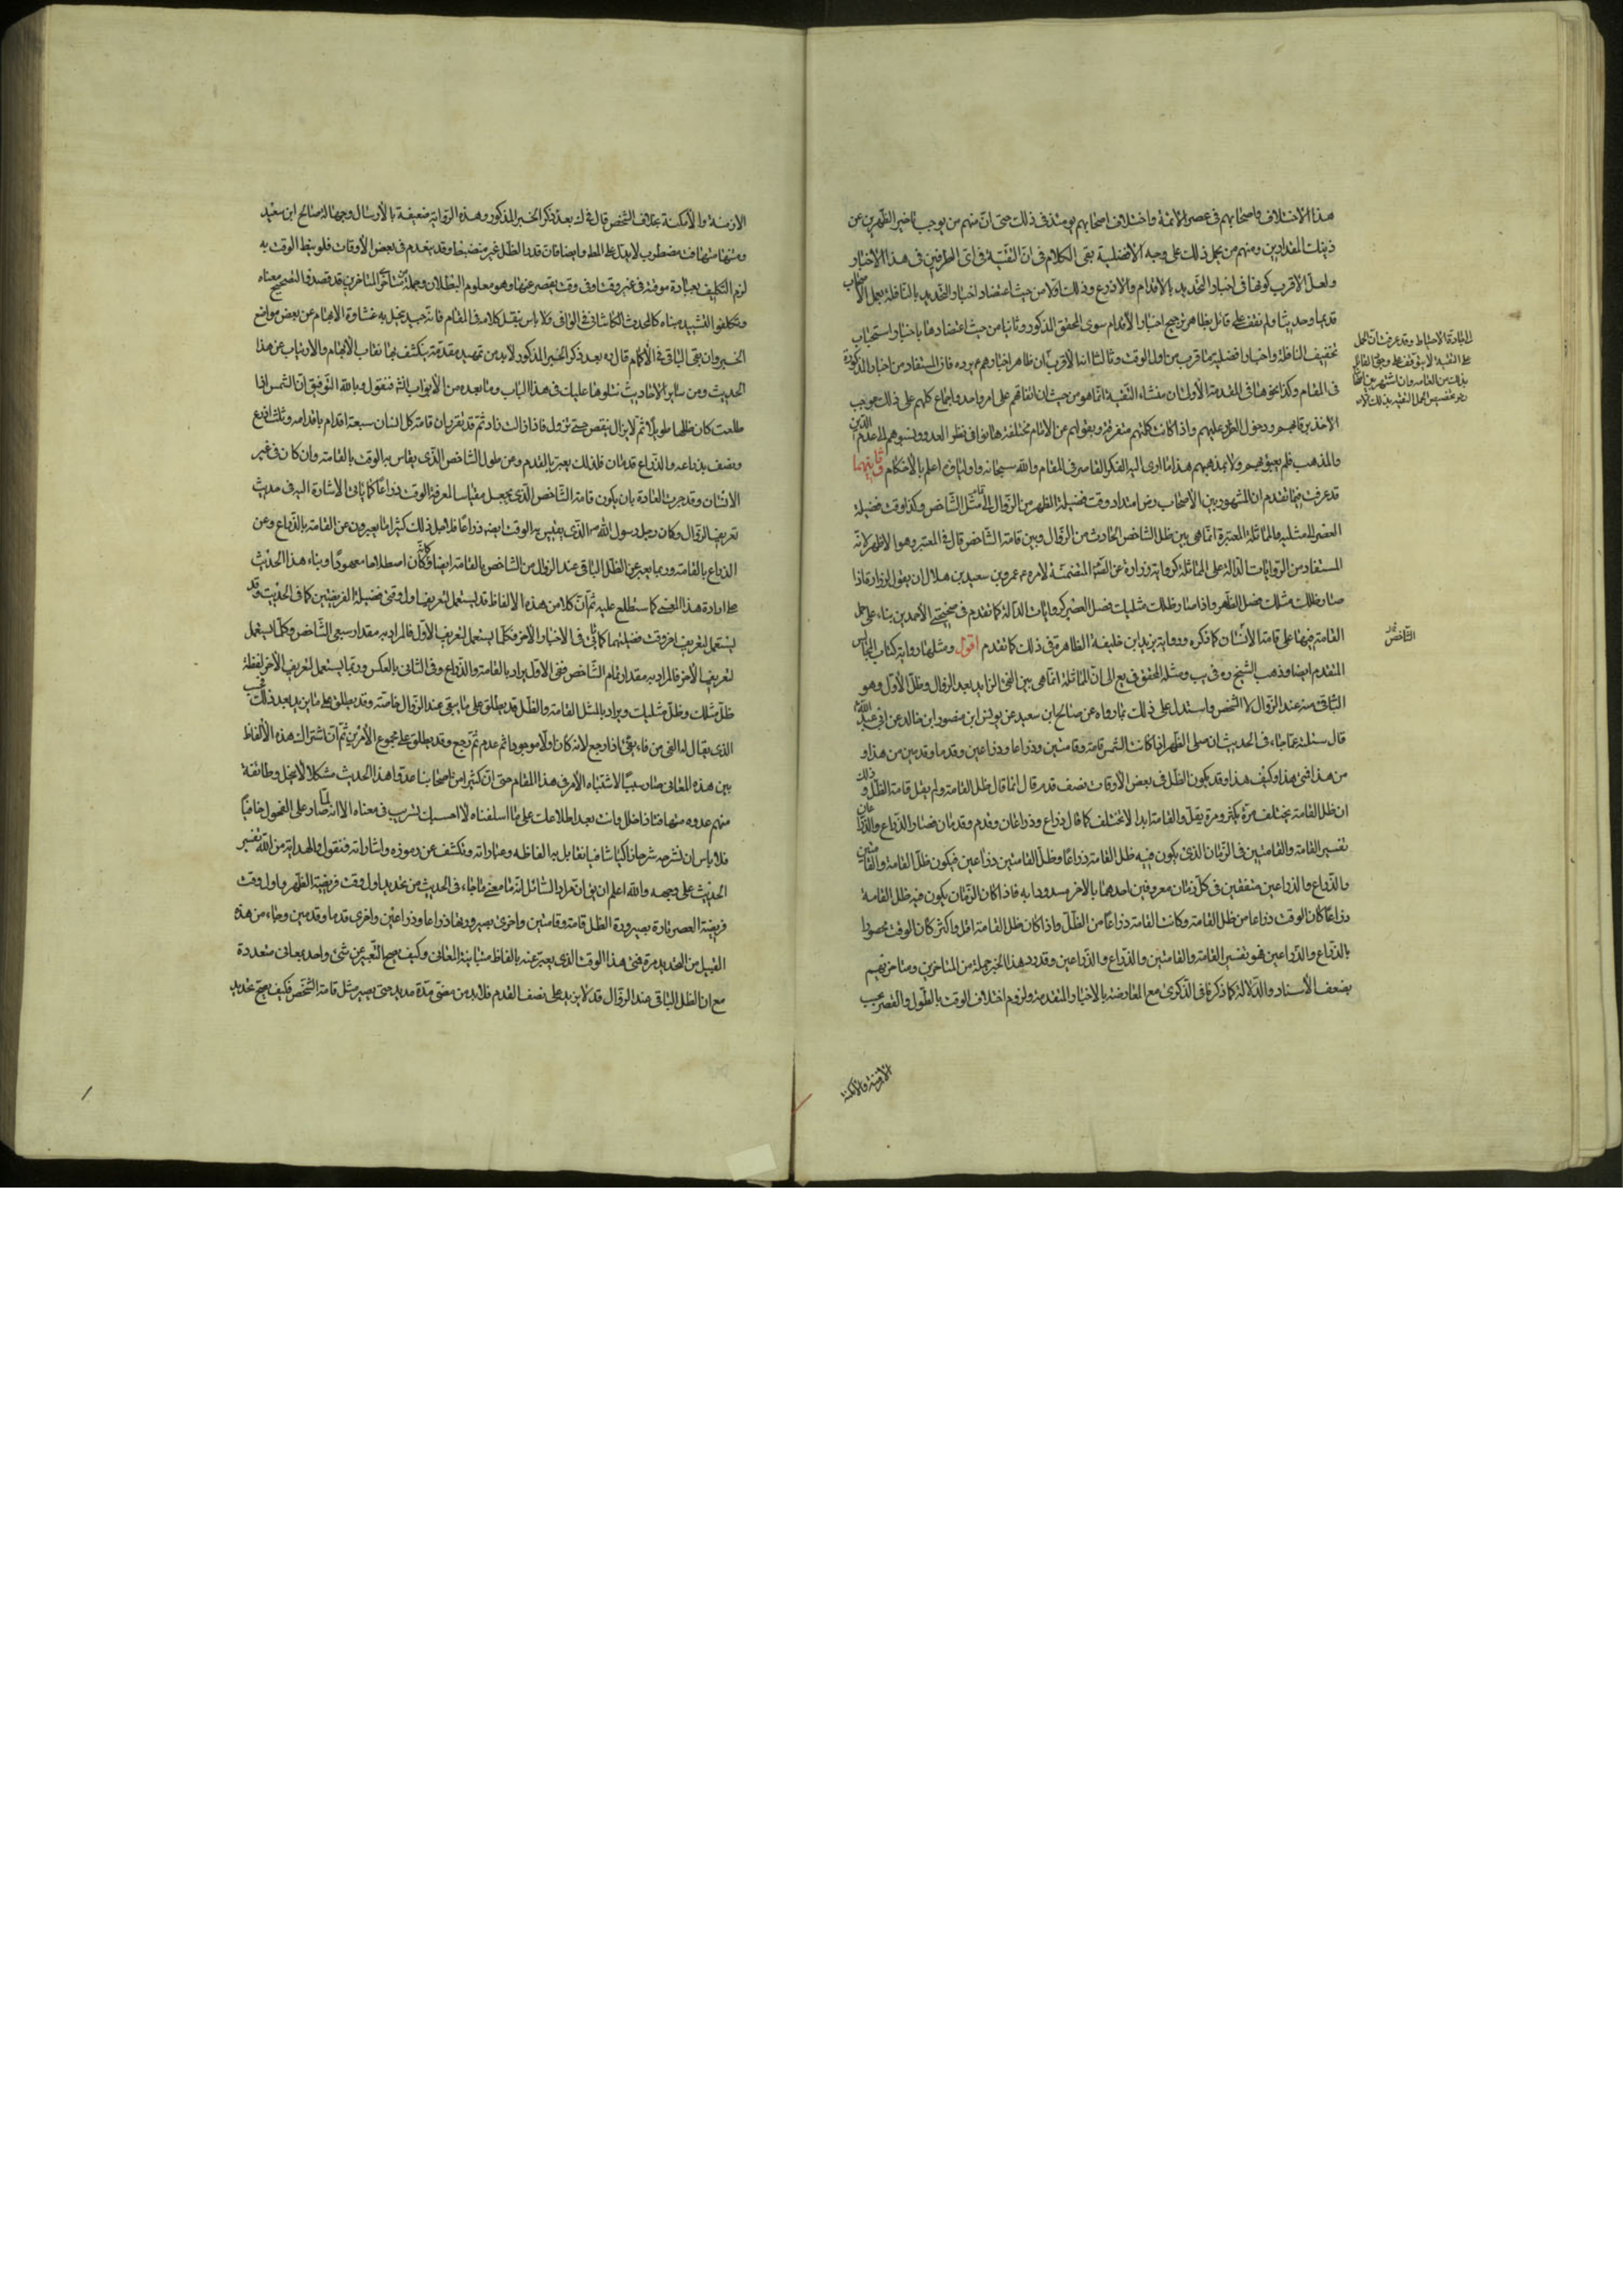 هذا الاختلاف واصحابهم فى عصر الأئمة واختلاف اصحابهم يومئذ فى ذلك حتى انّ منهم من يوجب تاخير الظهرين عن
ذينك المقدارين ومنهم من يحمل ذلك على وجه الأفضلية بقى الكلام فى انّ التقيّة فى اىّ الطرفين فى هذا الاخبار
ولعلّ الاقرب كونها فى اخبار التحديد بالاقدام والاذرع وذلك اولا من حيث اعتضاد اخبار التحديد بالنافلة بعمل الاصحاب
قديما وحديثا ولم نقف على قائل بظاهر ترجيح اخبار الأقدام سوى المحقق المذكور وثانيا من حيث اعتضادها باخبار استحباب
تخفيف النافلة واخبار افضلية ما قرب من اول الوقت وثالثا انه الأقرب ان ظاهر اخبارهم فان المستفاد من اخبار المذكورة
فى المقام وكذا نحوها فى المقدمة الأولى ان منشاء التقية انما هو من حيث ان اتفاقهم على امر واحد واجماع كلهم على ذلك موجب
الأخذ برقابهم ودخول الضرر عليهم واذا كانت كلمتهم متفرقة ونقولهم عن الامام مختلفة هانوا فى نظر العدو ونسبوهم الى عدم الدين
والمذهب فلم يعبؤا بهم ولا بمذهبهم هذا ما ادى اليه الفكر القاصر فى المقام والله سبحانه واولياؤه اعلم بالأحكام
قد عرفت فيما تقدم ان المشهور بين الأصحاب رض امتداد وقت فضيلة الظهر من الزوال الى مثل الشاخص وكذا وقت فضيلة
العصر الى مثليه والمماثلة المعتبرة انما هى بين ظل الشاخص الحادث من الزوال وبين قامة الشاخص قال فى المعتبر وهو الاظهر لانه
المستفاد من الروايات الدالة على المماثلة كرواية زرارة عن المتضمنة لامره ع عمرو بن سعيد بن هلال ان يقول لزرارة اذا
صار ظلك مثلك فصل الظهر واذا صار ظلك مثليك فصل العصر كروايات الدالة كما تقدم فى صحيحتى الأحمدين بناء على حمل
القامة فيها على قامة الأنسان كما ذكره ورواية يزيد ابن خليفة الظاهرة فى ذلك كما تقدم اقول ومثلها رواية كتاب المجالس
المتقدم ايضا وذهب الشيخ ره فى يب ومثله المحقق فى يع الى ان المماثلة انما هى بين الفئ الزايد بعد الزوال وظل الأول وهو
الباقى منه عند الزوال لا الشخص واستدل على ذلك بما رواه عن صالح ابن سعيد عن يونس ابن منصور ابن خالد عن ابى عبد الله
قال سئلته عما جاء فى الحديث ان صلى الظهر اذا كانت الشمس قامة وقامتين وذراعا وذراعين وقدما وقدمين من هذا و
من هذا فمتى هذا وكيف هذا وقد يكون الظل فى بعض الأوقات نصف قدم قال انما قال ظل القامة ولم يقل قامة الظل و ذلك
ان ظل القامة يختلف مرة يكثر ومرة يقل والقامة ابدا لا تختلف كما قال ذراع وذراعان وقدم وقدمان فصار الذراع والذراعان
تفسير القامة والقامتين فى الزمان الذى يكون فيه ظل القامة ذراعا وظل القامتين ذراعين فيكون ظل القامة والقامتين
والذراع والذراعين متفقين فى كل زمان معروفين احدهما بالاخر مسددا به فاذا كان الزمان يكون فيه ظل القامة
ذراعا كان الوقت ذراعا من ظل القامة وكانت القامة ذراعا من الظل واذا كان ظل القامة اقل واكثر كان الوقت محصورا
بالذراع والذراعين فهو تفسير القامة والقامتين والذراع والذراعين وقد رد هذا الخبر جملة من المتاخرين ومتاخريهم
بضعف الأسناد والدلالة كما ذكرنا فى الذكرى مع المعارضة بالاخبار المتقدمة ولزوم اختلاف الوقت بالطول والقصر بحسب
الأزمنة والأمكنة
الشاخص
الازمنة والأمكنة بخلاف الشخص قال فى ك بعد ذكر الخبر المذكور وهذه الرواية ضعيفة بالأرسال وجهالة صالح ابن سعيد
ومتنها متهافت مضطرب لا يدل على المط وايضا فان قدر الظل غير منضبط وقد ينعدم فى بعض الأوقات فلو نيط الوقت به
لزم التكليف بعبادة موقتة فى غير وقت او فى وقت يقصر عنها وهو معلوم البطلان وجملة من متأخرى المتاخرين قد قصدوا لتصحيح معناه
وتكلفوا لتشييد مبناه كالمحدث الكاشانى فى الوافى فلا باس بنقل كلامه فى المقام فانه جيد ينجلى به غشاوة الابهام عن بعض مواضع
الخبر وان بقى الباقى فى الأكمام قال ره بعد ذكر الخبر المذكور لابد من تمهيد مقدمة ينكشف بها نقاب الأبهام والارتياب عن هذا
الحديث ومن ساير الأحاديث نتلوها عليك فى هذا الباب وما بعده من الأبواب انش فنقول وبالله التوفيق ان الشمس اذا
طلعت كان ظلها طويلا ثم لا يزال ينقص حتى تزول فاذا زالت زاد ثم قد تقرر ان قامة كل انسان سبعة اقدام باقدامه وثلث اذرع
ونصف بذراعه والذراع قدمان فلذلك يعبر بالقدم وعن طول الشاخص الذى يقاس به الوقت بالقامة وان كان فى غير
الانسان وقد جرت العادة بان يكون قامة الشاخص الذى يجعل مقياسا لمعرفة الوقت ذراعا كما ياتى الأشارة اليه فى حديث
تعريف الزوال وكان رحل رسول الله ص الذى يقيس به الوقت ايضه ذراعا فلاجل ذلك كثيرا ما يعبرون عن القامة بالذراع وعن
الذراع بالقامة وربما يعبر عن الظل الباقى عند الزوال من الشاخص بالقامة ايضا وكأنه كان اصطلاحا معهودا وبناء هذا الحديث
على ارادة هذا المعنى كما ستطلع عليه ثم ان كلا من هذه الالفاظ قد يستعمل لتعريف اول وقتى فضيلة الفريضتين كما فى الحديث وقد
يستعمل لتعريف اخر وقت فضيلتهما كما ياتى فى الاخبار الاخر فكلما يستعمل لتعريف الأول فالمراد به مقدار سبعى الشاخص وكلما يستعمل
لتعريف الأخر فالمراد به مقدار تمام الشاخص ففى الأول يراد بالقامة والذراع وفى الثانى بالعكس وربما يستعمل لتعريف الأخر لفظة
ظل مثلك وظل مثليك ويراد بالمثل القامة والظل قد يطلق على ما يبقى عند الزوال خاصة وقد يطلق على ما يزيد بعد ذلك
الذى يقال له الفئ من فاء يفئ اذا رجع لانه كان اولا موجودا ثم عدم ثم رجع وقد يطلق على مجموع الأمرين ثم ان اشتراك هذه الألفاظ
بين هذه المعانى صار سببا لاشتباه الأمر فى هذا المقام حتى ان كثيرا من اصحابنا عدوا هذا الحديث مشكلا لا ينحل وطائفة
منهم عدوه متهافتا ذا خلل وانت بعد اطلاعك على ما اسلفناه لا احسبك تستريب فى معناه الا انه لما صار على الفحول خافيا
فلا باس ان نشرحه شرحا شافيا نقابل به الفاظه وعباراته ونكشف عن رموزه واشاراته فنقول والهداية من الله تفسير
الحديث على وجهه والله اعلم ان يقال مراد السائل انه ما معنى ما جاء فى الحديث من تحديد اول وقت فريضة الظهر واول وقت
فريضة العصر تارة بصيرورة الظل قامة وقامتين واخرى بصيرورتها ذراعا وذراعين واخرى قدما وقدمين وجاء من هذه
القبيل من التحديد مرة فمتى هذا الوقت الذى يعبر عنه بالفاظ متباينة المعانى وكيف يصح التعبير عن شئ واحد بمعانى متعددة
مع ان الظل الباقى عند الزوال قد لا يزيد على نصف القدم فلابد من مضى مدة مديدة حتى يصير مثل قامة الشخص فكيف يصح تحديد